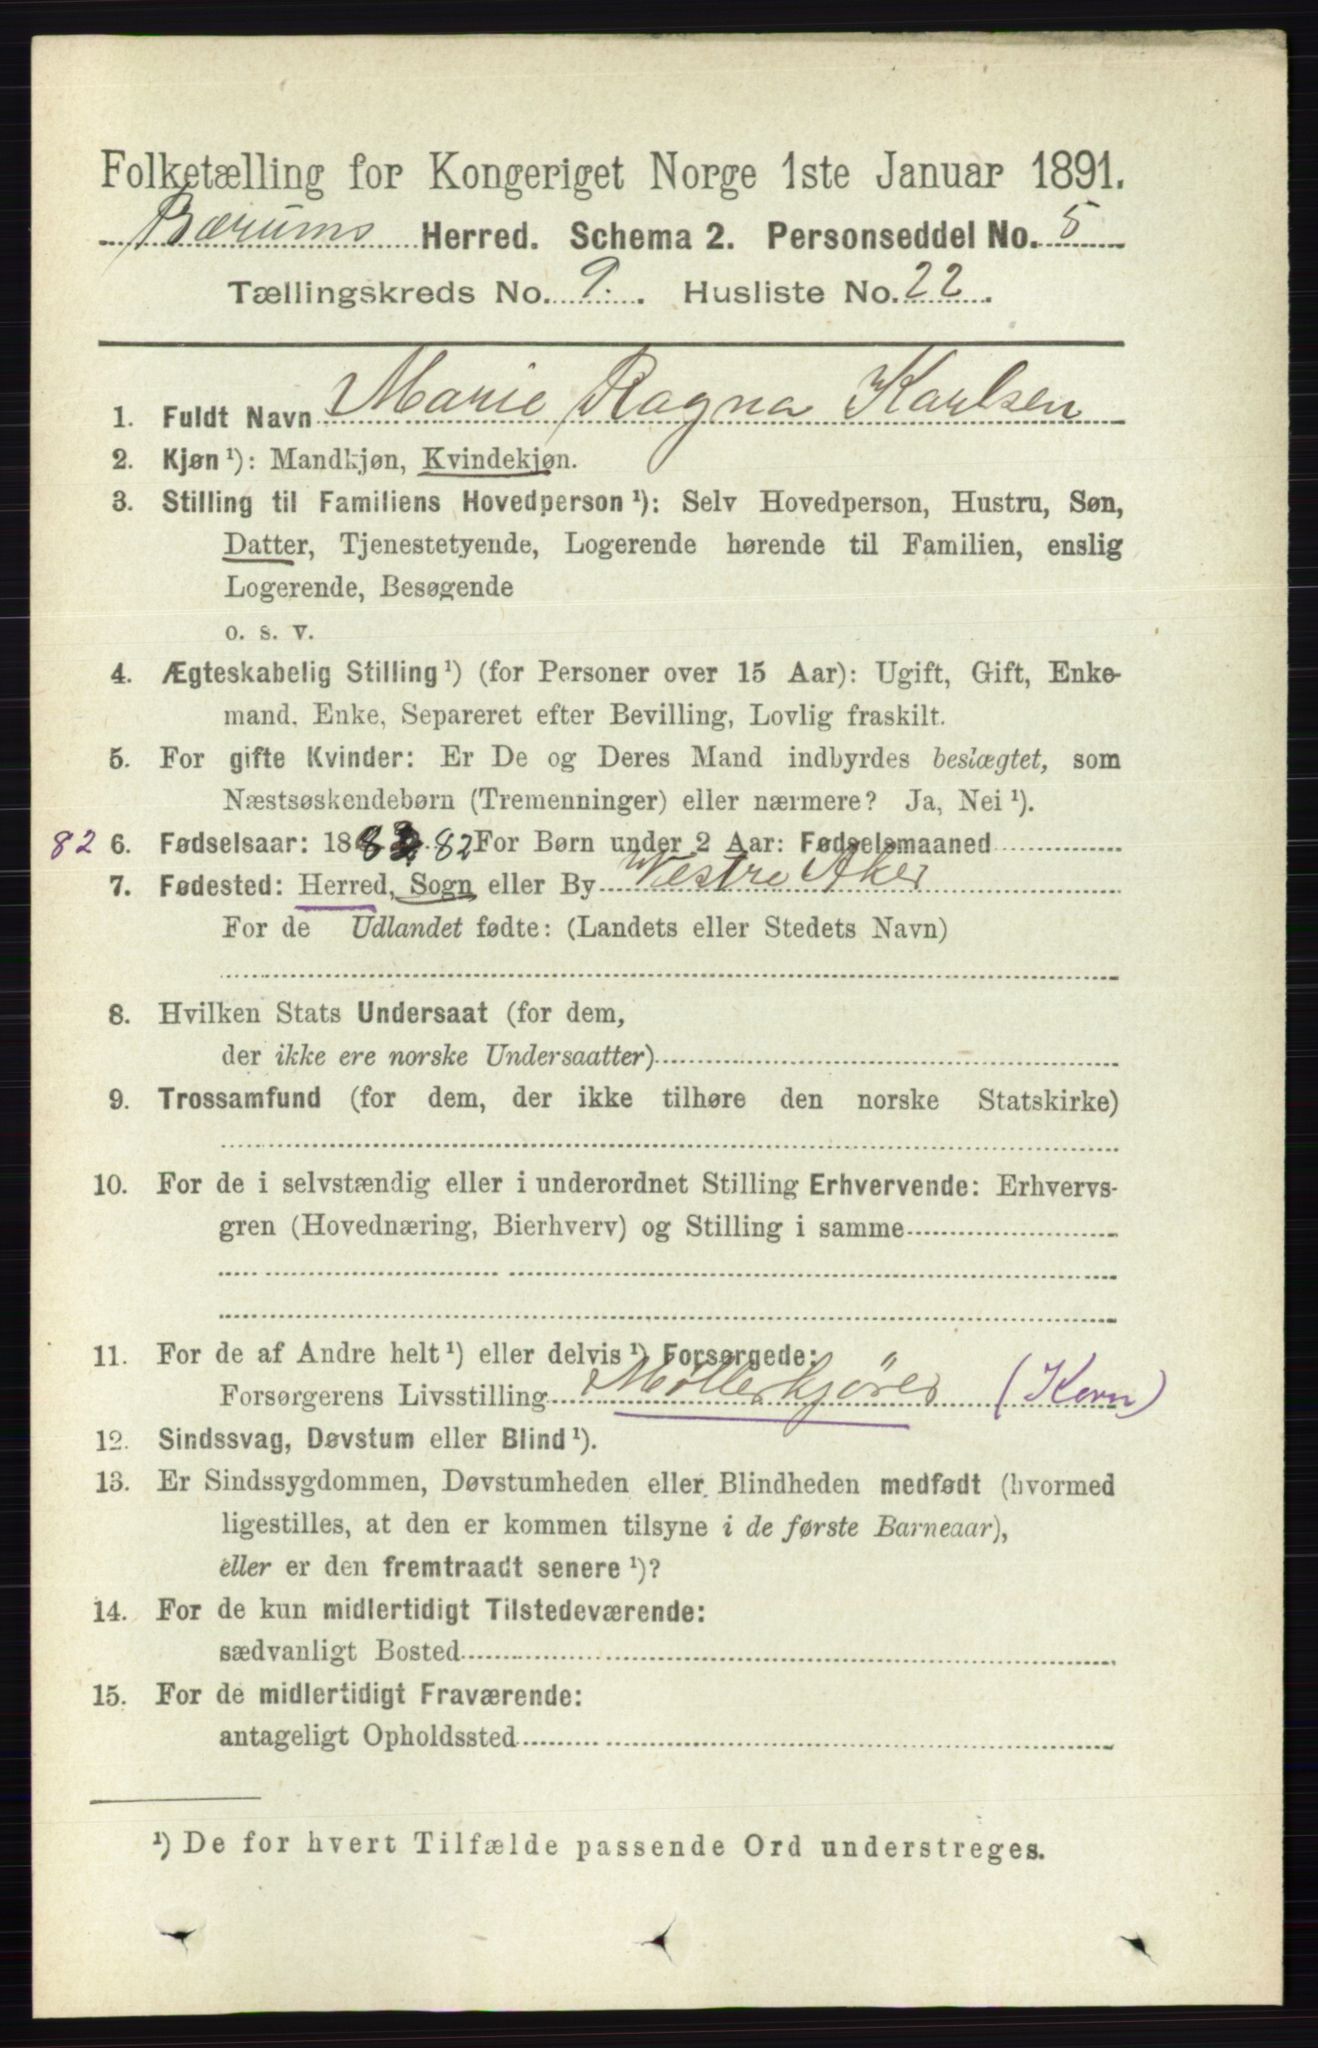 Folketælling for Kongeriget Norge 1ste Januar 1891.
Bærums Herred. Schema 2. Personseddel No. 5
Tællingskreds No. 9. Husliste No. 22.
1. Fuldt Navn Marie Ragna Karlsen
2. Kjøn ¹): Mandkjøn, Kvindekjøn.
3. Stilling til Familiens Hovedperson ¹): Selv Hovedperson, Hustru, Søn,
Datter, Tjenestetyende, Logerende hørende til Familien, enslig
Logerende, Besøgende
o. s. v.
4. Ægteskabelig Stilling ¹) (for Personer over 15 Aar): Ugift, Gift, Enke-
mand, Enke, Separeret efter Bevilling, Lovlig fraskilt.
5. For gifte Kvinder: Er De og Deres Mand indbyrdes beslægtet, som
Næstsøskendebørn (Tremenninger) eller nærmere? Ja, Nei ¹).
82 6. Fødselsaar: 18 82 For Børn under 2 Aar: Fødselsmaaned
7. Fødested: Herred, Sogn eller By Vestre Aker
For de Udlandet fødte: (Landets eller Stedets Navn)
8. Hvilken Stats Undersaat (for dem,
der ikke ere norske Undersaatter)
9. Trossamfund (for dem, der ikke tilhøre den norske Statskirke)
10. For de i selvstændig eller i underordnet Stilling Erhvervende: Erhvervs-
gren (Hovednæring, Bierhverv) og Stilling i samme
11. For de af Andre helt ¹) eller delvis ¹) Forsørgede:
Forsørgerens Livsstilling Møllerkjører (Korn)
12. Sindssvag, Døvstum eller Blind ¹).
13. Er Sindssygdommen, Døvstumheden eller Blindheden medfødt (hvormed
ligestilles, at den er kommen tilsyne i de første Barneaar),
eller er den fremtraadt senere ¹)?
14. For de kun midlertidigt Tilstedeværende:
sædvanligt Bosted
15. For de midlertidigt Fraværende:
antageligt Opholdssted
¹) De for hvert Tilfælde passende Ord understreges.